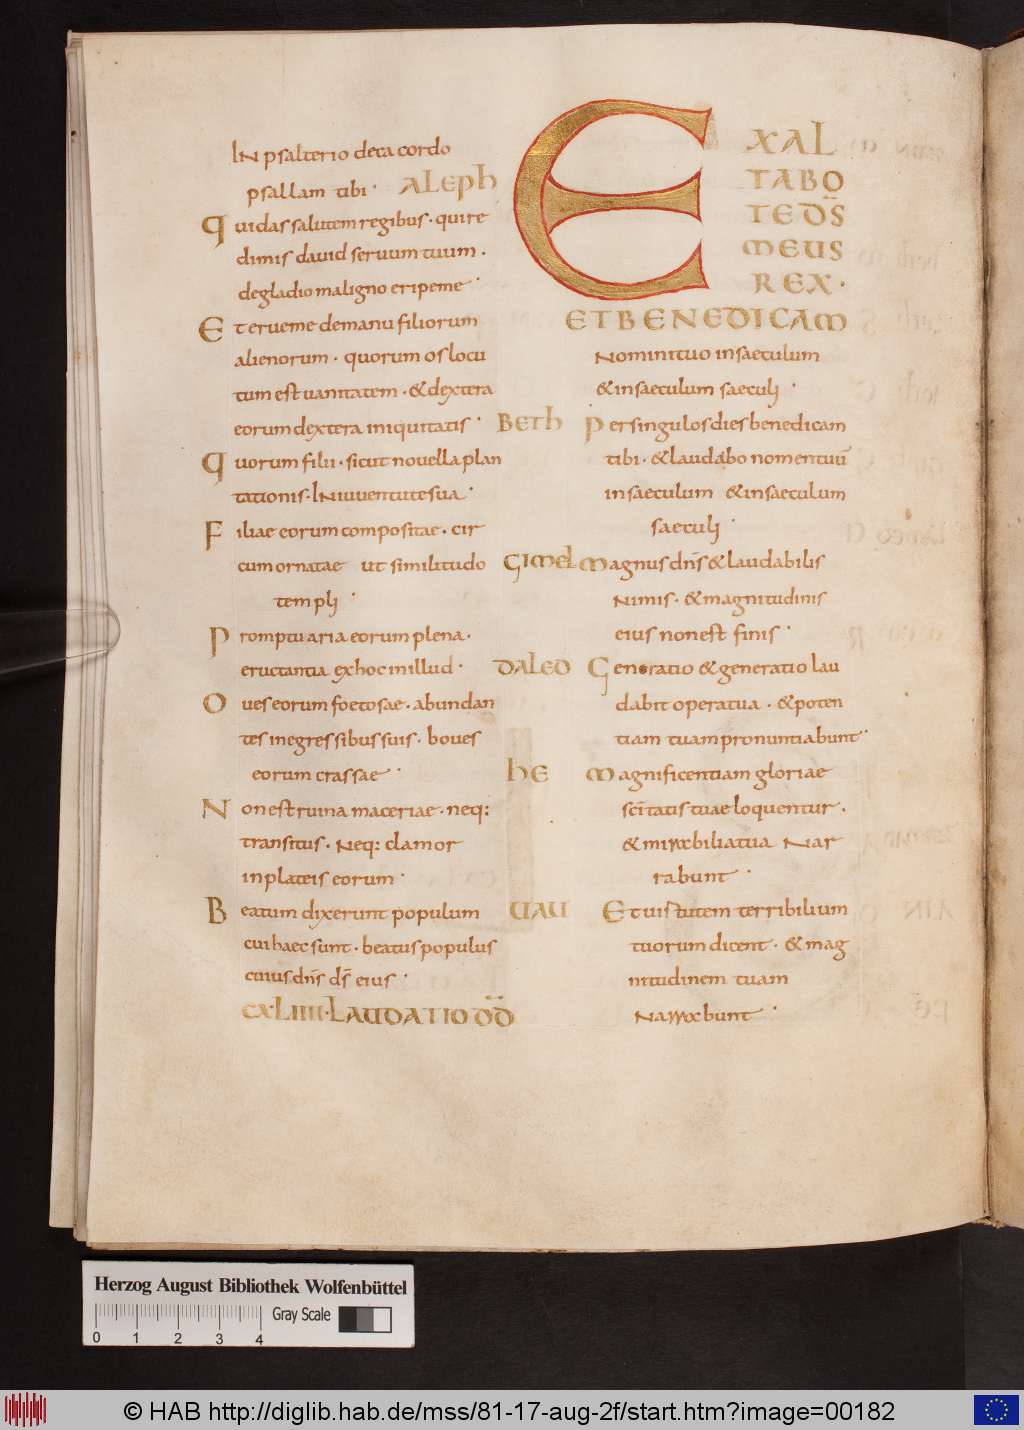 IN psalterio decacordo
psallam tibi·
Qui das salutem regibus· qui re
dimis dauid seruum tuum·
degladio maligno eripe me
Et erue me demanu filiorum
alienorum· quorum os locu
tum est uanitatem· & dextera
eorum dextera iniquitatis
Quorum filii· sicut nouella plan
tationis· IN iuuentute sua
Filiae eorum compositae· cir
cum ornatae ut similitudo
templi
Promptuaria eorum plena·
eructantia ex hoc in illud·
Oues eorum foetosae· abundan
tes inegressibus suis· boues
eorum crassae
Non est ruina maceriae· neq:
transitus· Neq: clamor
inplateis eorum
Beatum dixerunt populum
cui haec sunt· beatus populus
cuius dn̄s ds̄ eius
CXLIIII· LAUDATIO DD̄
ALEPH
EXAL
TABO
TE DS̄
MEUS
REX·
ET BENEDICAM
Nomini tuo insaeculum
& insaeculum saeculi
BETH Per singulos dies benedicam
tibi· & laudabo nomen tuū
insaeculum & insaeculum
saeculi
GIMEL Magnus dn̄s & laudabilis
Nimis· & magnitudinis
eius non est finis
DALED Generatio & generatio lau
dabit opera tua· & poten
tiam tuam pronuntiabunt
HE Magnificentiam gloriae
sc̄itatis tuae loquentur·
& mirabilia tua Nar
rabunt
UAU Et uirtutem terribilium
tuorum dicent· & mag
nitudinem tuam
Narrabunt
Herzog August Bibliothek Wolfenbüttel
Gray Scale
0 1 2 3 4
© HAB http://diglib.hab.de/mss/81-17-aug-2f/start.htm?image=00182